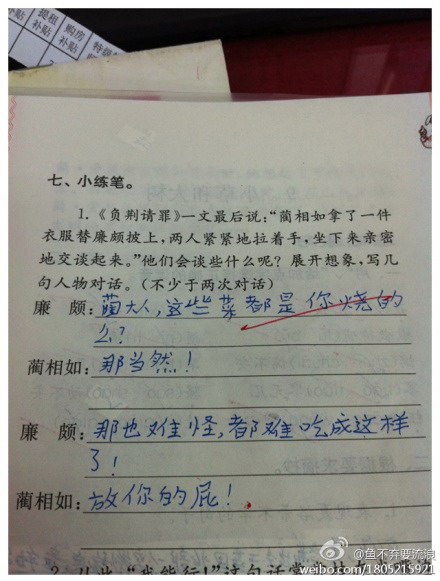 提租
补贴
购房
补贴
特级
七、小练笔。
1.《负荆请罪》一文最后说:“蔺相如拿了一件
衣服替廉颇披上,两人紧紧地拉着手,坐下来亲密
地交谈起来。”他们会谈些什么呢?展开想象,写几
句人物对话。(不少于两次对话)
廉 颇:蔺大人,这些菜都是你烧的
么?
蔺相如:那当然!
廉 颇:那也难怪,都难吃成这样
了!
蔺相如:放你的屁!
@鱼不弃要流浪
weibo.com/1805215921